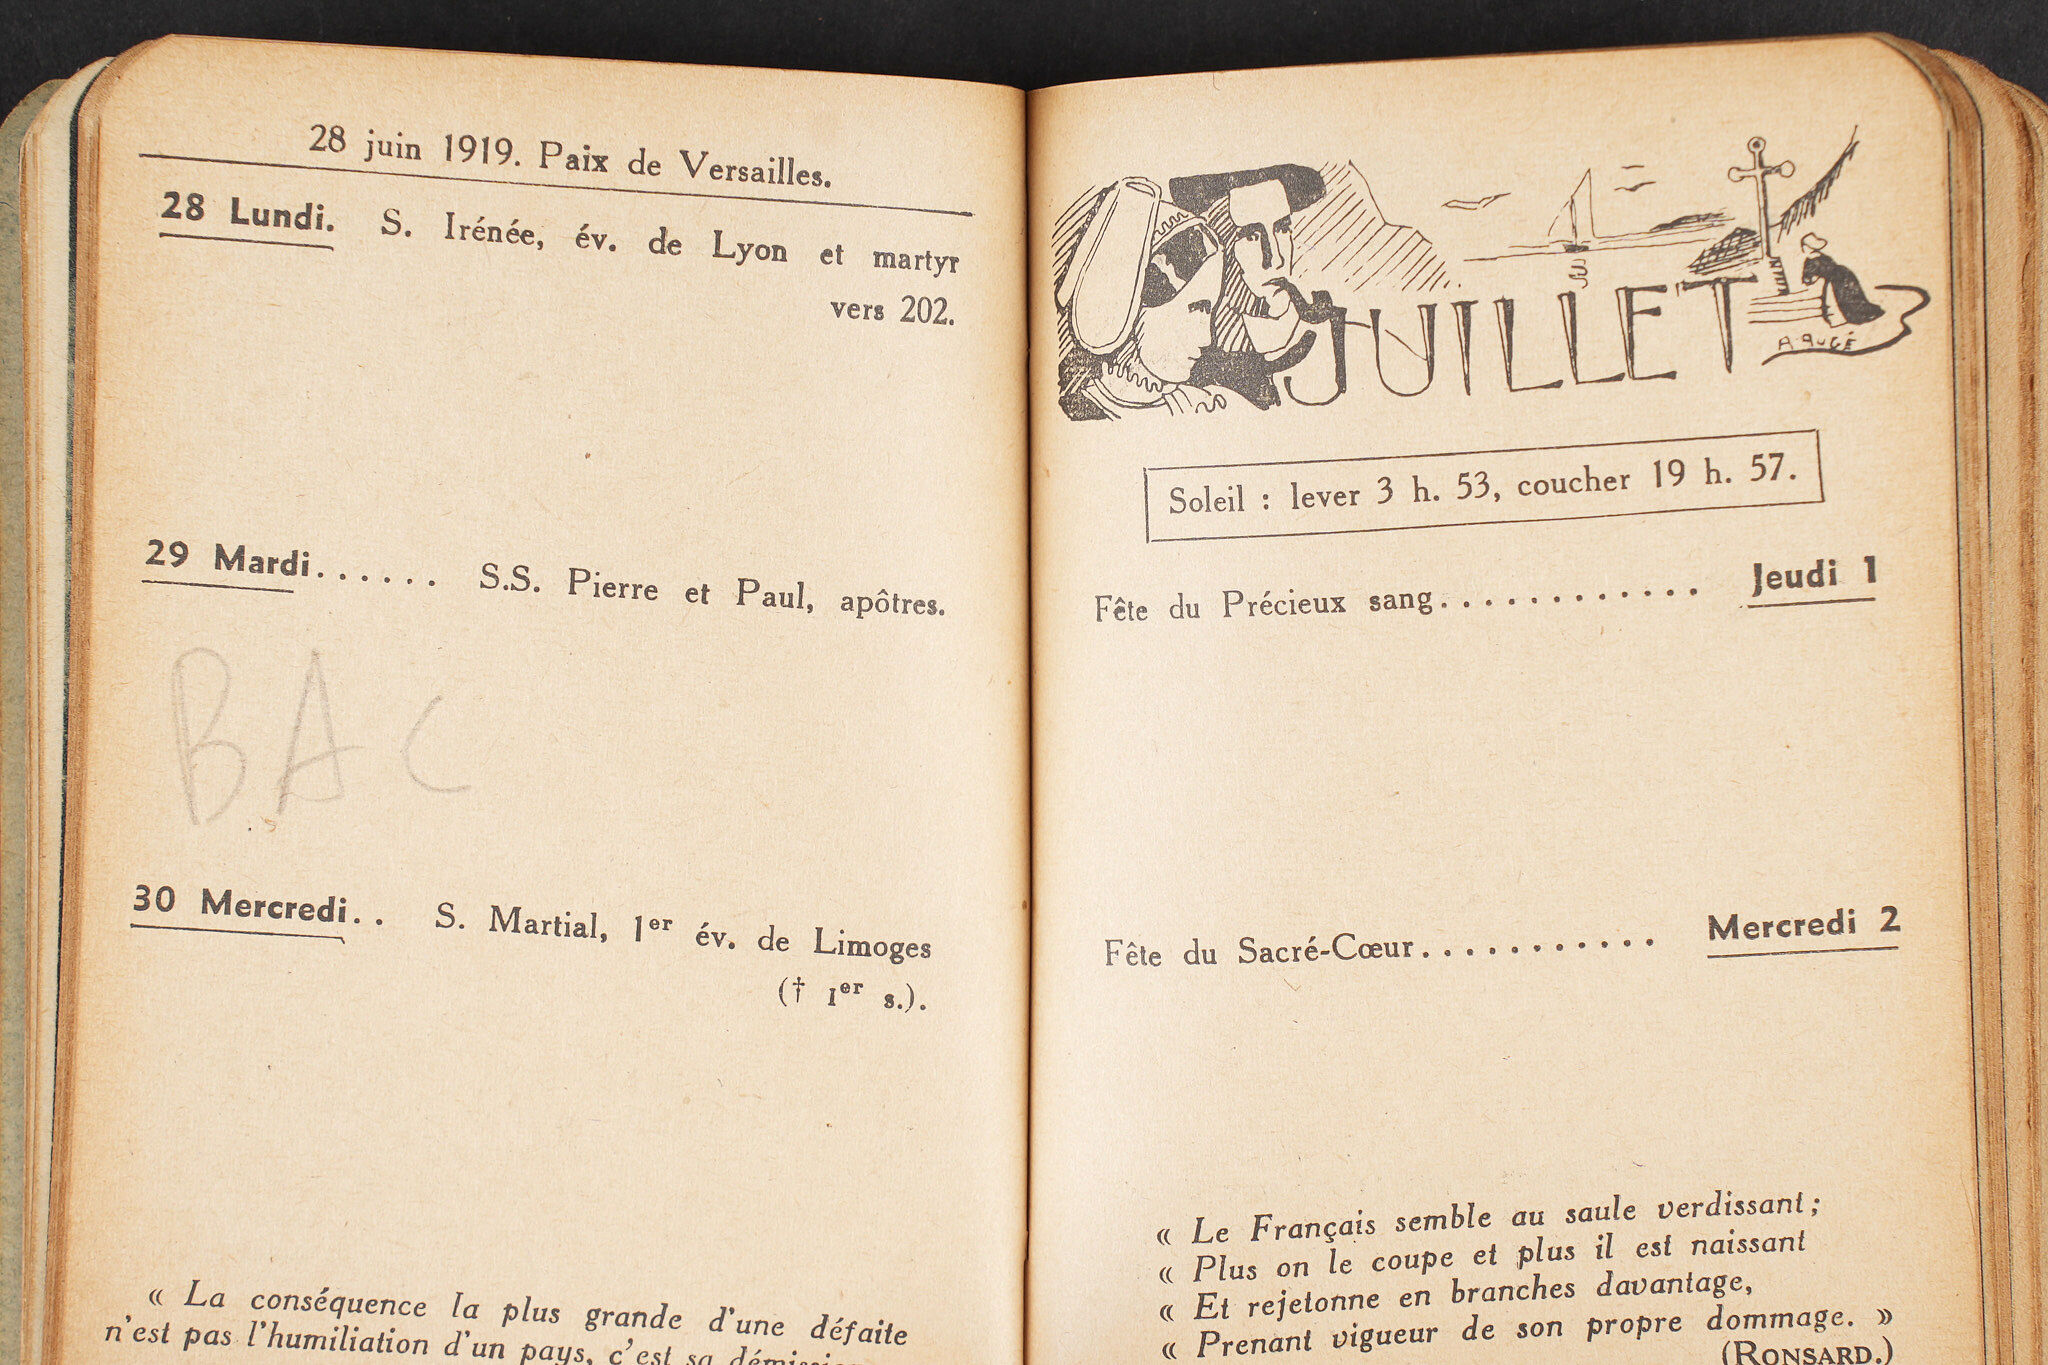 28 juin 1919. Paix de Versailles.
28 Lundi. S. Irénée, év. de Lyon et martyr
vers 202.
29 Mardi...... S.S. Pierre et Paul, apôtres.
BAC
30 Mercredi.. S. Martial, 1er év. de Limoges
(† 1er s.).
« La conséquence la plus grande d'une défaite
n'est pas l'humiliation d'un pays, c'est sa
JUILLET
A AUGÉ
Soleil : lever 3 h. 53, coucher 19 h. 57.
Fête du Précieux sang............ Jeudi 1
Fête du Sacré-Cœur........... Mercredi 2
« Le Français semble au saule verdissant ;
« Plus on le coupe et plus il est naissant
« Et rejetonne en branches davantage,
« Prenant vigueur de son propre dommage. »
(RONSARD.)